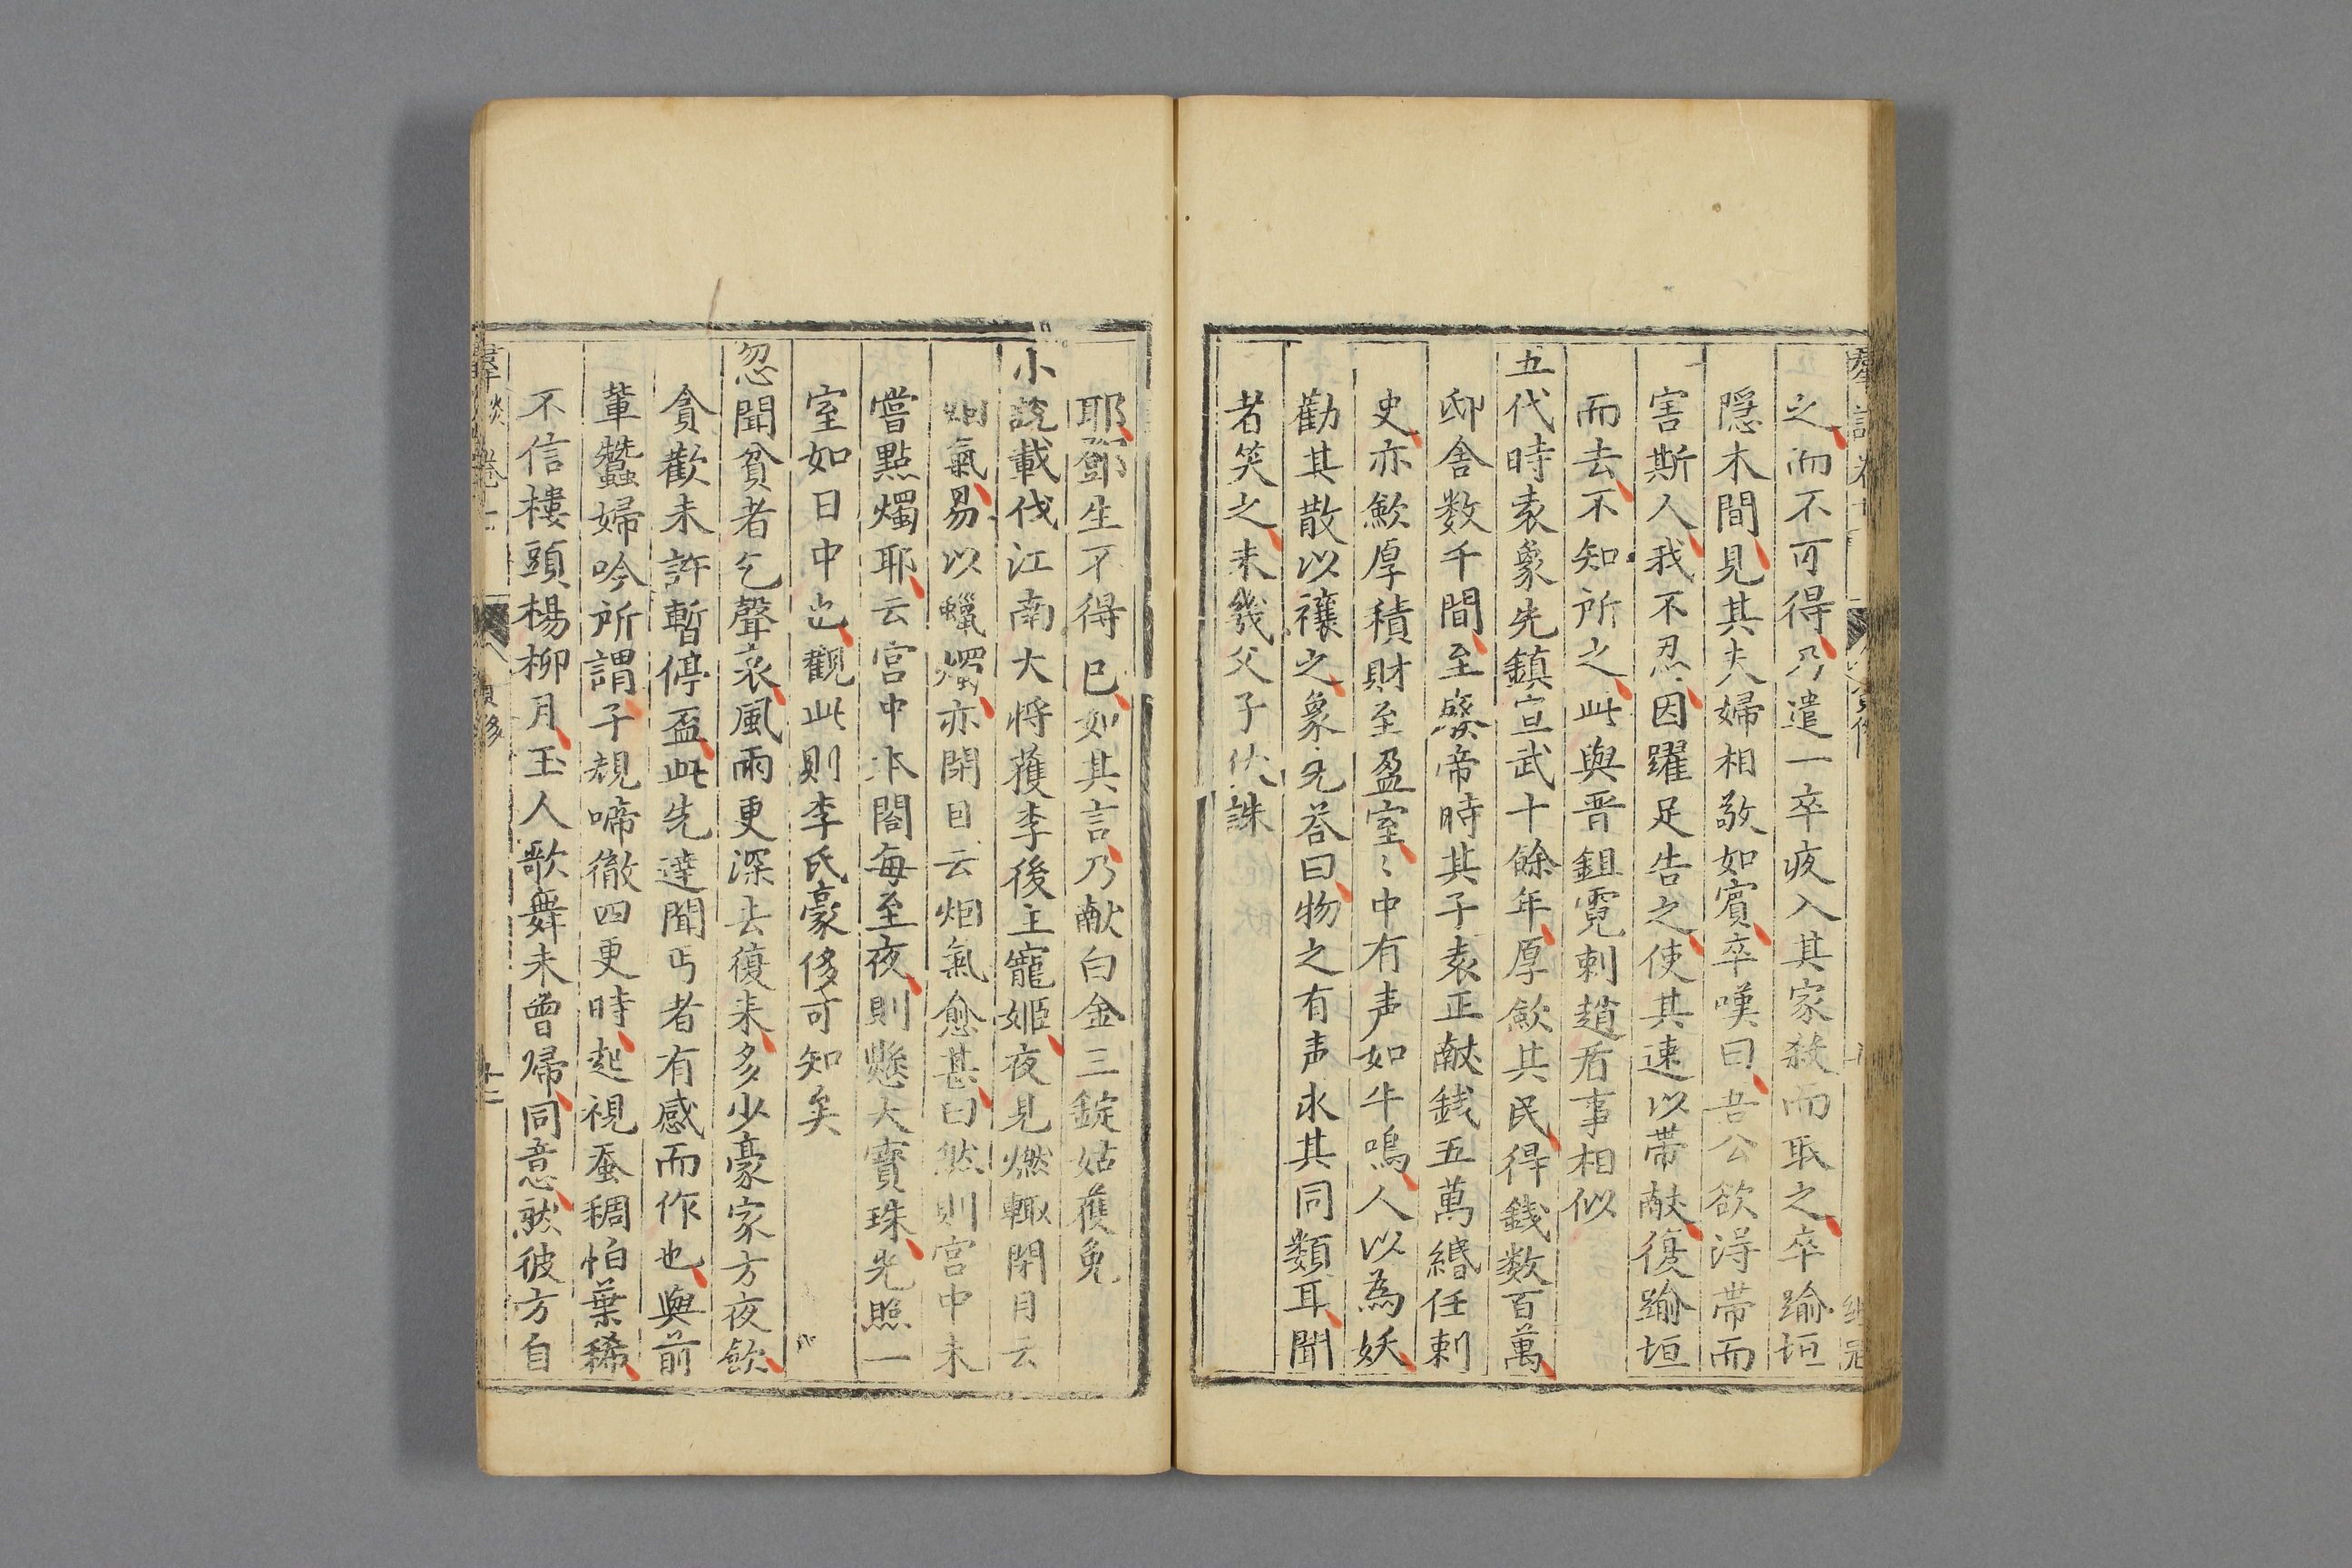 之而不可得乃遣一卒夜入其家殺而取之卒踰垣
隠木間見其夫婦相敬如賓卒嘆曰吾公欲得帶而
害斯人我不忍因躍足告之使其速以帶献復踰垣
而去不知所之此與晋鉏霓刺趙盾事相似
五代時袁象先鎮宣武十餘年厚歛其民得銭数百萬
邸舎数千間至癈帝時其子袁正献銭五萬緡任刺
史亦歛厚積財至盈室〻中有声如牛鳴人以為妖
勸其散以禳之象先答曰物之有声求其同類耳聞
者笑之未幾父子伏誅
耶鄧生不得已如其言乃献白金三錠姑獲免
小說載伐江南大将獲李後主寵姬夜見燃輙閉目云
烟氣易以蠟燭亦閉目云烟氣愈甚曰然則宮中未
嘗點燭耶云宮中本閣每至夜則懸大寶珠光照一
室如日中也觀此則李氏豪侈可知矣
忽聞貧者乞聲哀風雨更深去復来多少豪家方夜飲
貪歡未許暫停盃此先達聞丐者有感而作也與前
輩蠶婦吟所謂子規啼徹四更時起視蚕稠怕葉稀
不信樓頭楊柳月玉人歌舞未曾帰同意然彼方自